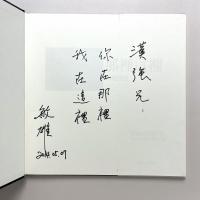 漢強兄：
你在那裡
我在這裡
敏雄
2014.05.07